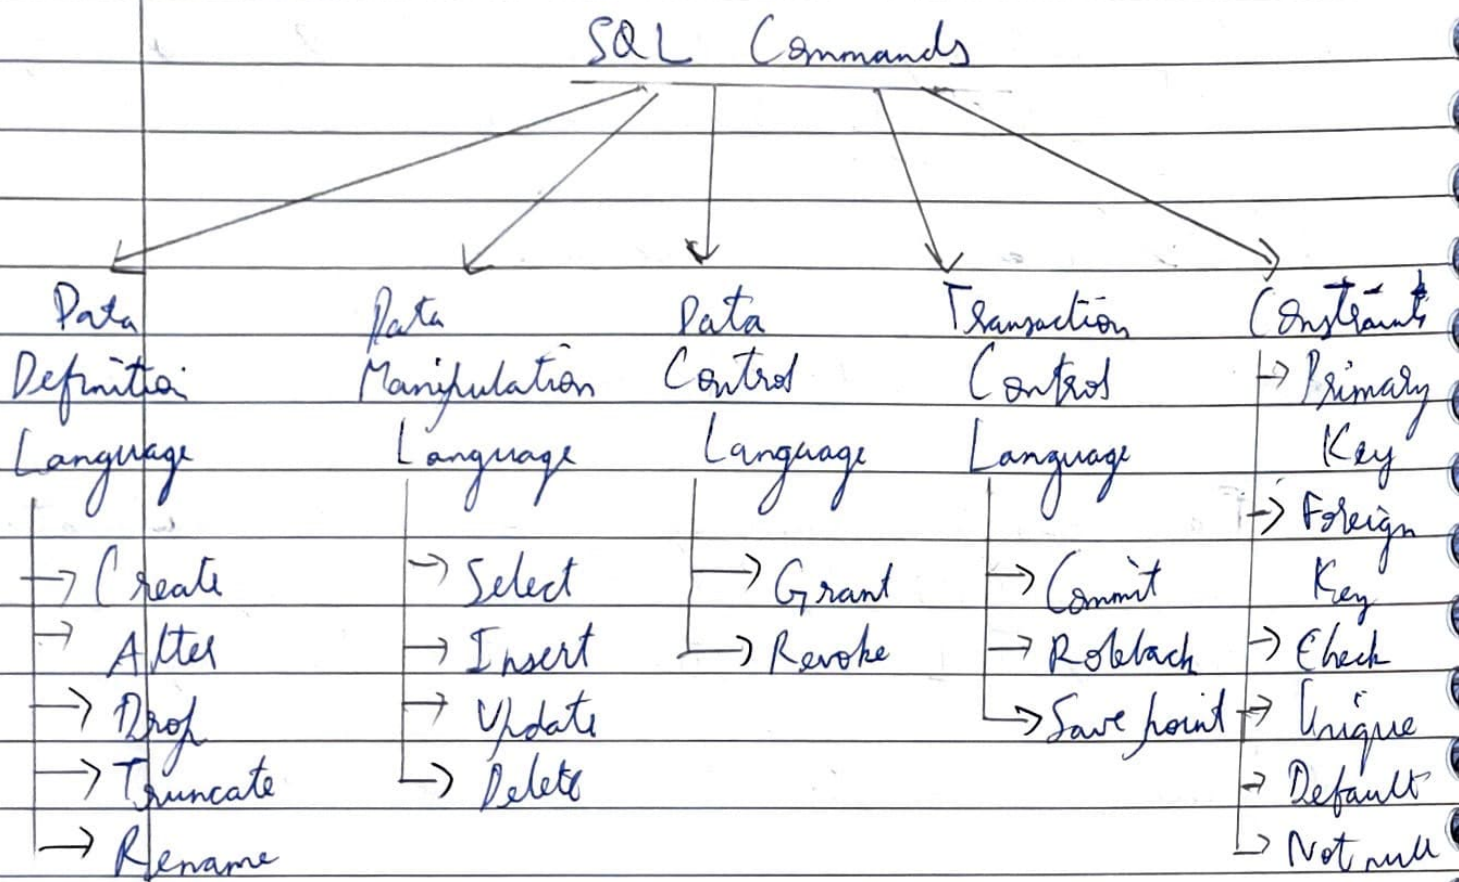 SQL Commands
Data
Definition
Language
Create
Alter
Drop
Truncate
Rename
Data
Manipulation
Language
Select
Insert
Update
Delete
Data
Control
Language
Grant
Revoke
Transaction
Control
Language
Commit
Rollback
Save point
Constraints
Primary
Key
Foreign
Key
Check
Unique
Default
Not null